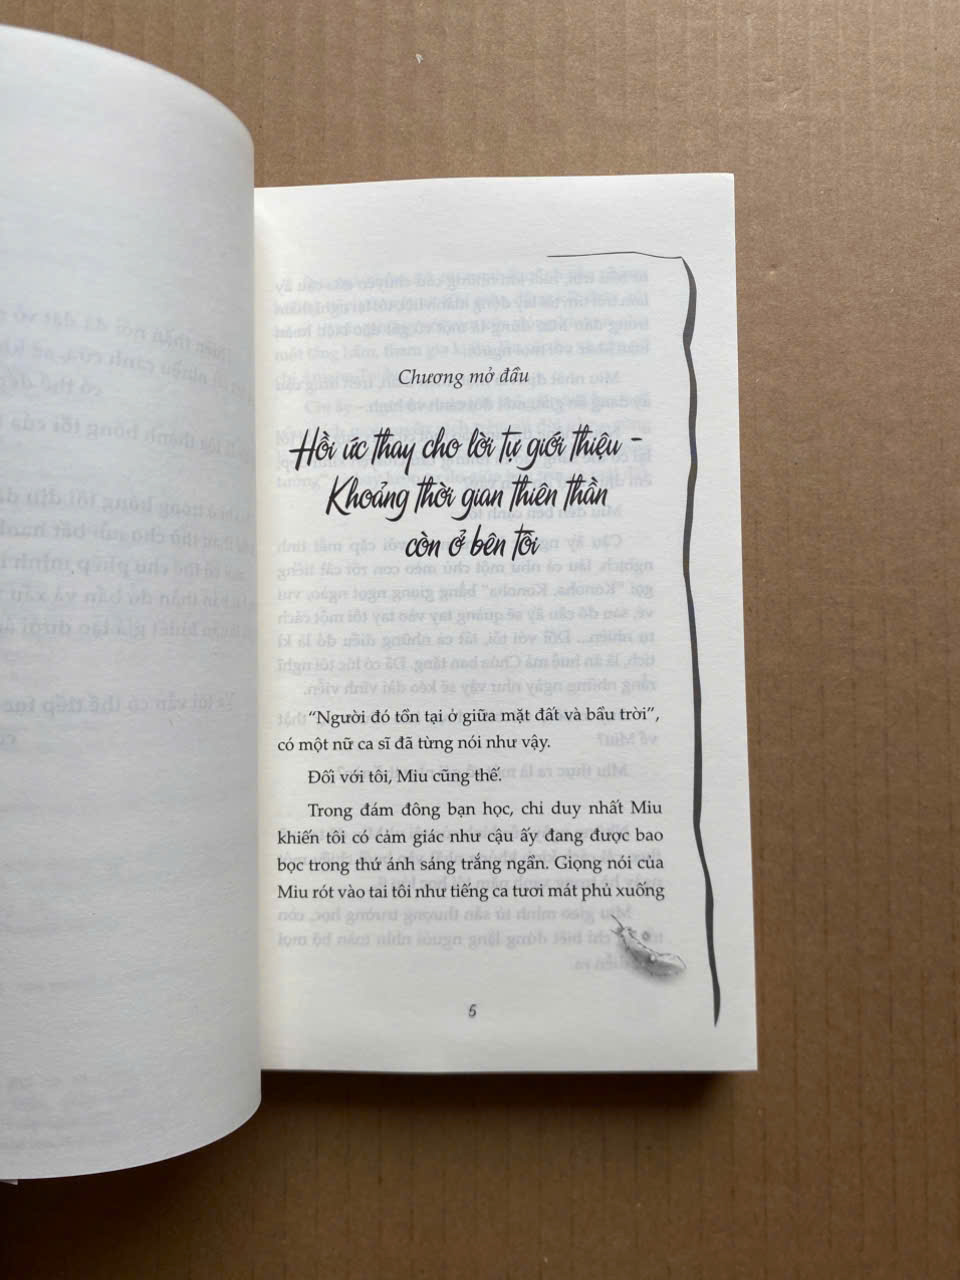 Chương mở đầu
Hồi ức thay cho lời tự giới thiệu -
Khoảng thời gian thiên thần
còn ở bên tôi
“Người đó tồn tại ở giữa mặt đất và bầu trời”,
có một nữ ca sĩ đã từng nói như vậy.
Đối với tôi, Miu cũng thế.
Trong đám đông bạn học, chỉ duy nhất Miu
khiến tôi có cảm giác như cậu ấy đang được bao
bọc trong thứ ánh sáng trắng ngần. Giọng nói của
Miu rót vào tai tôi như tiếng ca tươi mát phủ xuống
5